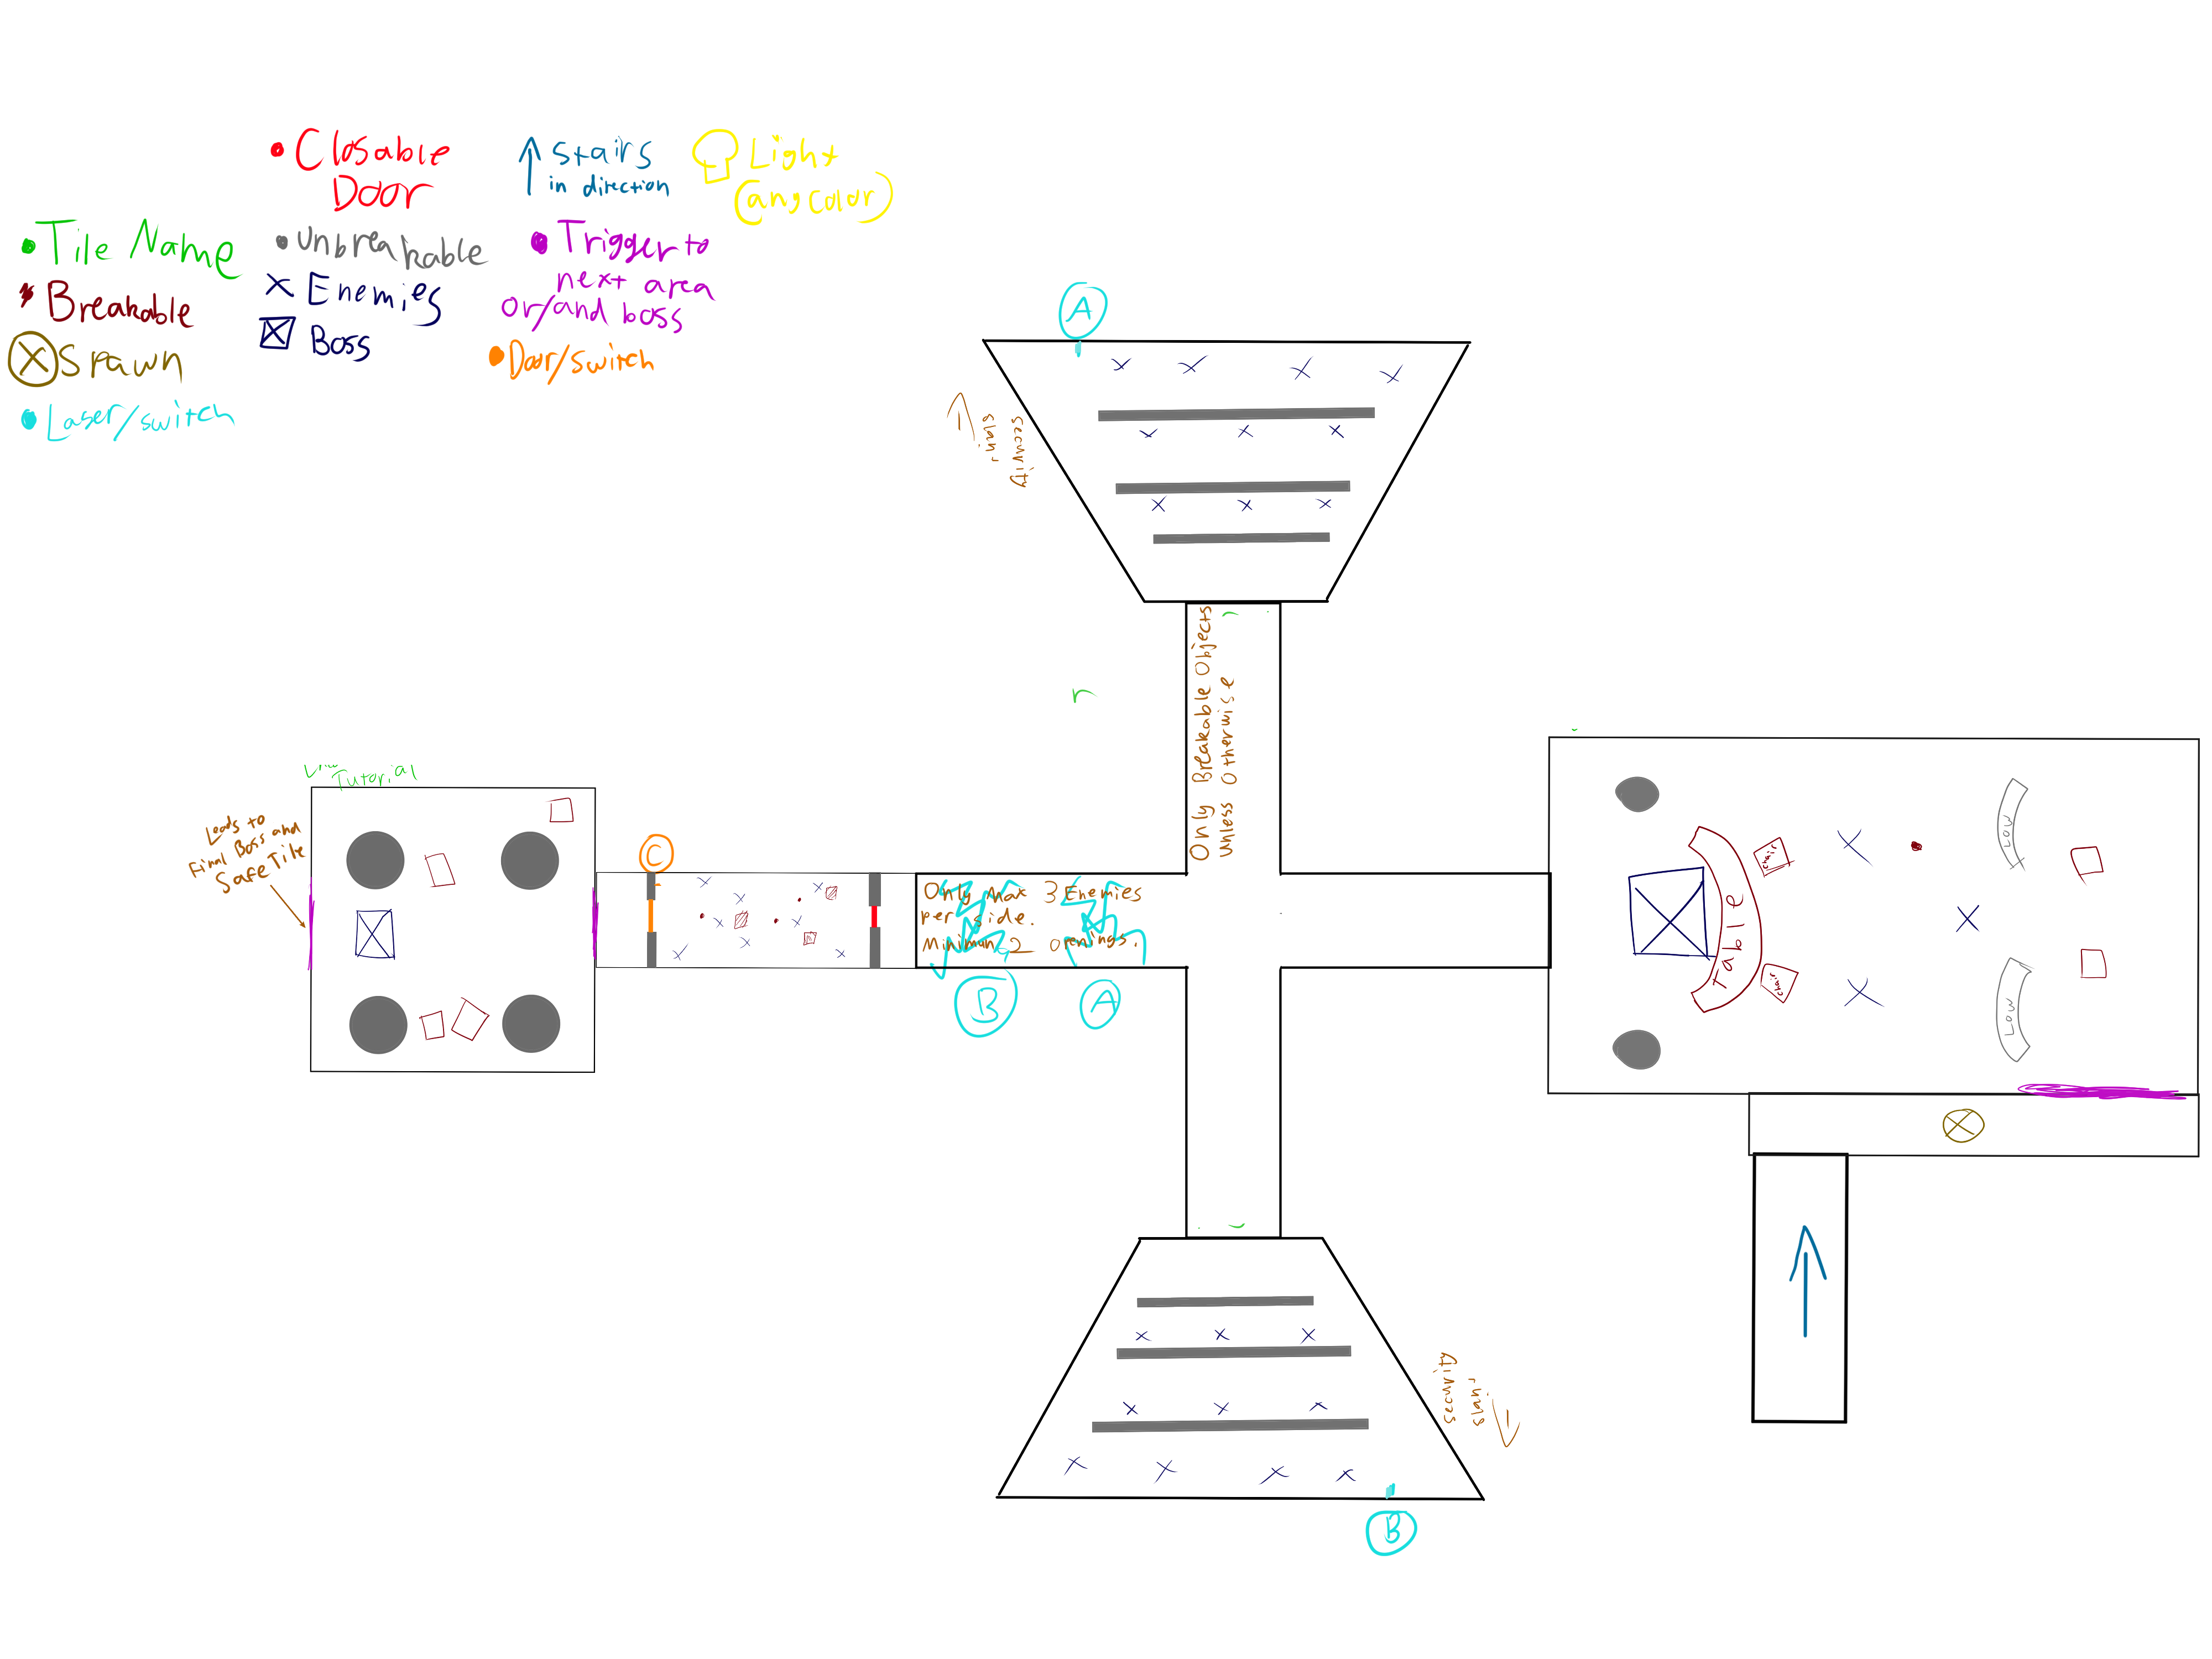 Closable
Door
Stairs
in direction
Light
(any color)
Tile Name
Unbreakable
Trigger to
next area
or/and boss
Breakable
Enemies
Boss
Spawn
Door/switch
Laser/switch
A
security
Only Breakable Objects
unless Otherwise
Tutorial
Leads to
Final Boss and
Safe Tile
C
Only Max 3 Enemies
per side.
Minimum 2 openings.
B
A
Table
chair
chair
Low
Low
security
B